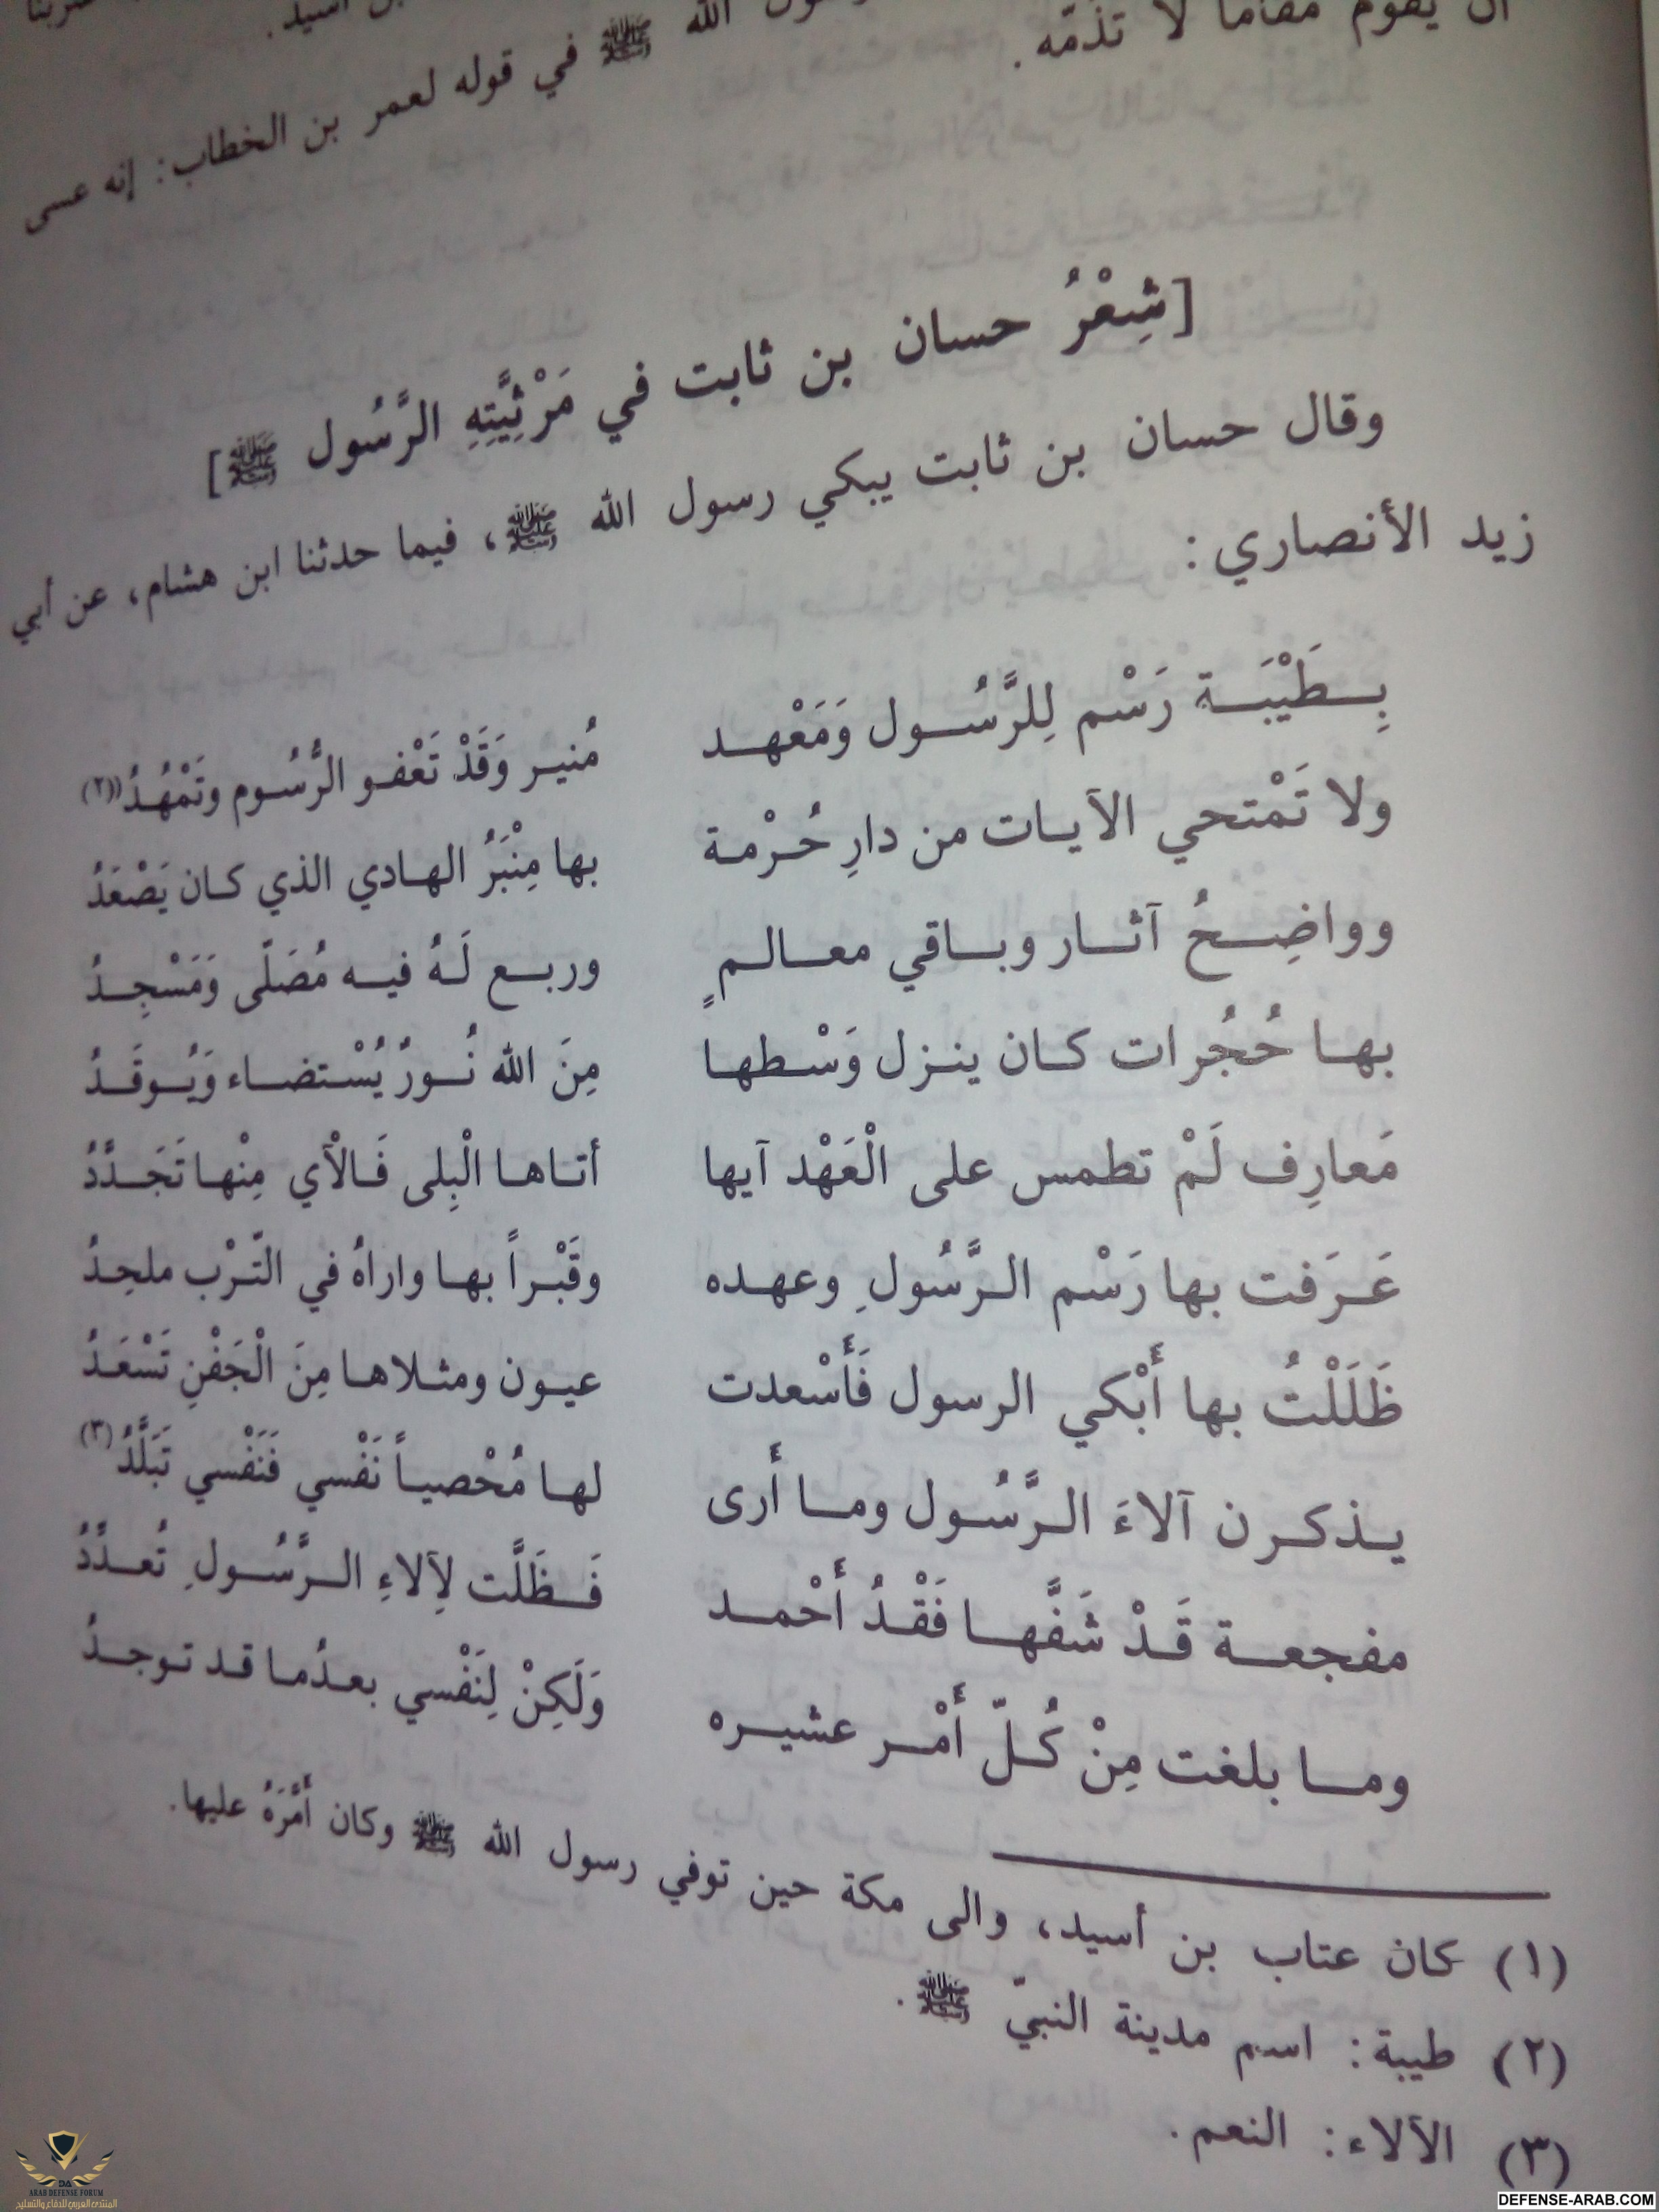 رسول الله ﷺ في قوله لعمر بن الخطاب: إنه عسى
أن يقوم مقاما لا تذمّه.
[شِعْرُ حسان بن ثابت في مَرْثِيَّتِهِ الرَّسُول ﷺ]
وقال حسان بن ثابت يبكي رسول الله ﷺ، فيما حدثنا ابن هشام، عن أبي
زيد الأنصاري:
بِـطَيْبَـة رَسْم لِلرَّسُـول وَمَعْهـد مُنيـر وَقَدْ تَعْفـو الرُّسُـوم وتَمْهُـدُ((٢)
ولا تَمْتحي الآيـات من دارِ حُـرْمـة بها مِنْبَرُ الهـادي الذي كـان يَصْعَدُ
وواضِـحُ آثـار وبـاقي معـالـمٍ وربـع لَـهُ فيـه مُصَلّى وَمَسْجِـدُ
بهـا حُجُرات كـان ينـزل وَسْطهـا مِنَ الله نُـورٌ يُسْتضـاء وَيُـوقَـدُ
مَعارِف لَمْ تطمس على الْعَهْد آيها أتـاهـا الْبِلى فَـالْآي مِنْها تَجَـدَّدُ
عَـرَفت بها رَسْم الـرَّسُولِ وعهـده وقَبْـراً بهـا واراهُ في التّـرْب ملحِـدُ
ظَلَلْتُ بها أَبْكي الرسول فَأَسْعدت عيـون ومثـلاهـا مِنَ الْجَفْنِ تَسْعَـدُ
يـذكـرن آلاءَ الـرَّسُـول ومـا أَرى لهـا مُحْصيـاً نَفْسي فَنَفْسي تَبَلَّدُ(٣)
مفجعـة قَـدْ شَفَّهـا فَقْـدُ أَحْمـد فَـظَلَّت لِآلاءِ الـرَّسُـولِ تُعـدَّدُ
ومـا بلغت مِنْ كُـلّ أَمْـر عشيـره وَلَكِنْ لِنَفْسي بعـدُمـا قـد تـوجـدُ
(١) كان عتاب بن أسيد، والى مكة حين توفي رسول الله ﷺ وكان أَمَّرَهُ عليها.
(٢) طيبة: اسم مدينة النبيّ ﷺ.
(٣) الألاء: النعم.
ARAB DEFENSE FORUM
المنتدى العربي للدفاع والتسليح
DEFENSE-ARAB.COM